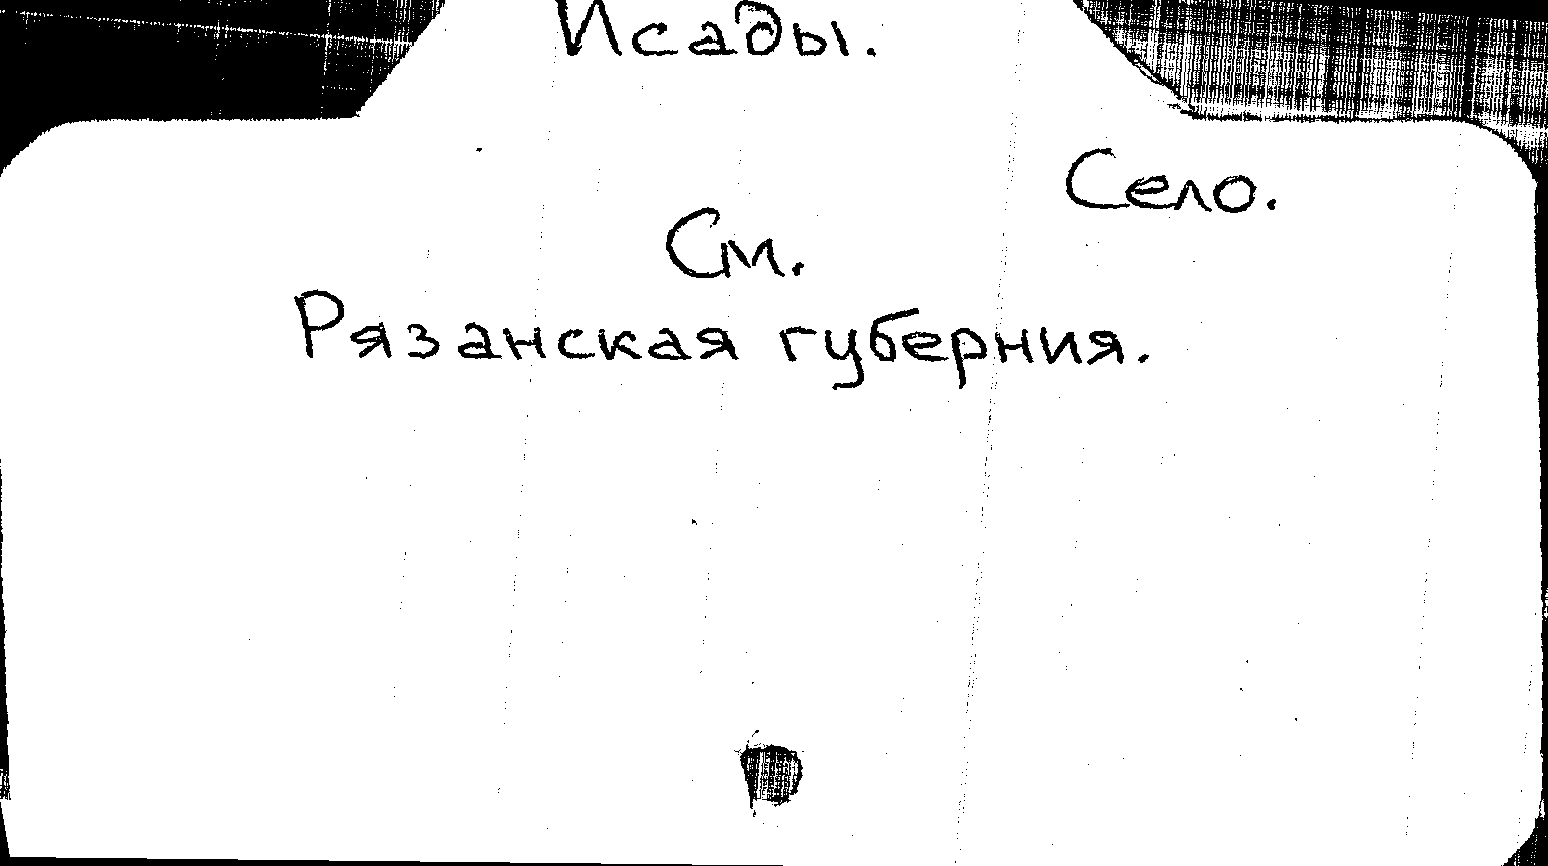 Исады.
Село.
См.
Рязанская губерния.